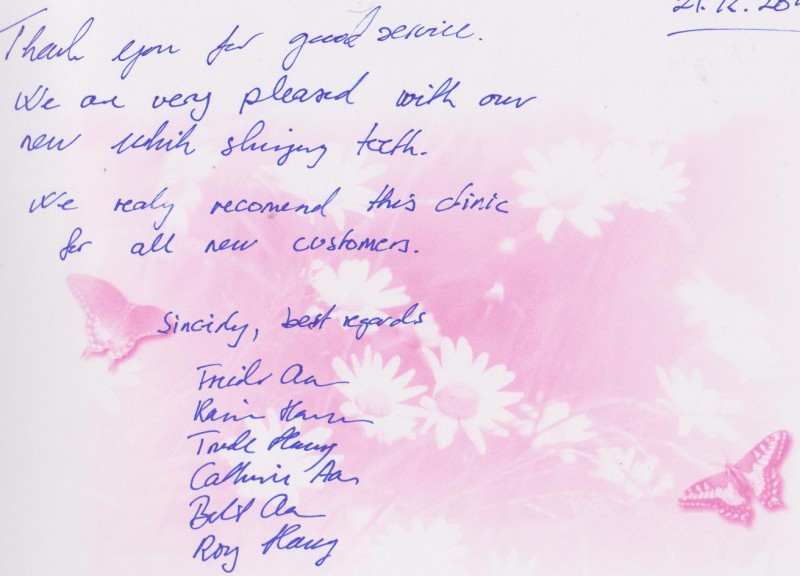 21.12.20
Thank you for good service.
We are very pleased with our
new white shinging teeth.
We realy recomend this clinic
for all new customers.
Sincirly, best regards
Aa
Hansen
Trude Haug
Cathrin Aas
Aa
Roy Haug